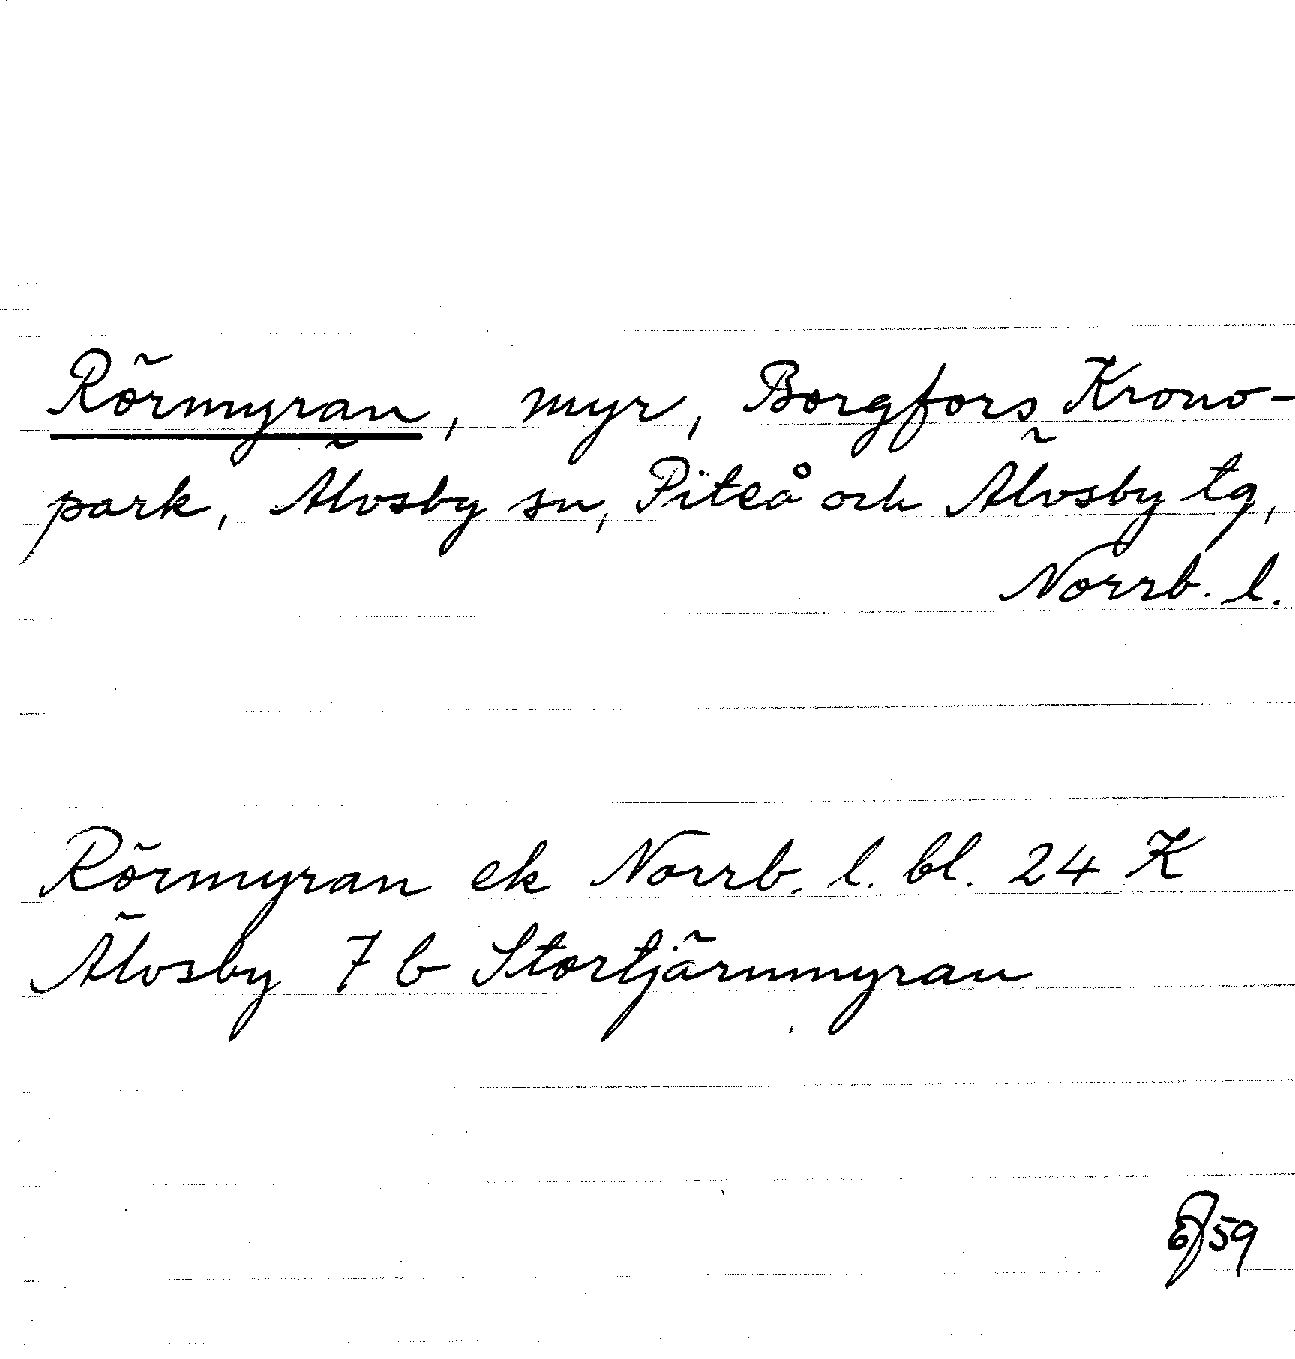 Rörmyran, myr, Borgfors Krono-
park, Älvsby sn, Piteå och Älvsby tg,
Norrb. l.
Rörmyran ek Norrb. l. bl. 24 K
Älvsby 7 b Stortjärnmyran
59